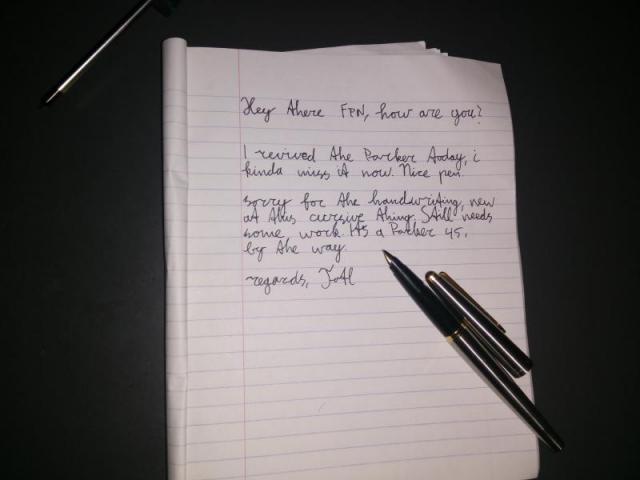 Hey there FPN, how are you?
I revived the Parker today, i
kinda miss it now. Nice pen.
sorry for the handwriting, new
at this cursive thing. Still needs
some work. It's a Parker 45,
by the way.
regards,